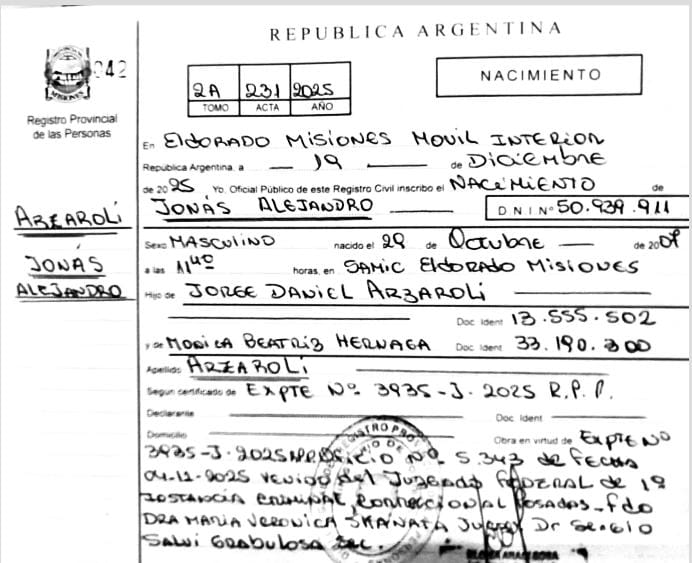 REPUBLICA ARGENTINA
042
MISIONES
Registro Provincial
de las Personas
2A 231 2025
TOMO ACTA AÑO
NACIMIENTO
En ElDORADO MISIONES MOVIL INTERIOR
República Argentina, a 19 de DICIEMBRE
de 2025 Yo. Oficial Público de este Registro Civil inscribo el NACIMIENTO de
JONÁS ALEJANDRO D N I Nº 50.939.911
ARZAROLI
JONÁS
ALEJANDRO
Sexo MASCULINO nacido el 29 de Octubre de 2007
a las 11⁴⁰ horas, en SAMIC ElDORADO MISIONES
Hijo de JORGE DANIEL ARZAROLI
Doc Ident 13.555.502
y de MONICA BEATRIZ HERNAGA Doc Ident 33.190.300
Apellido ARZAROLI
Según certificado de EXPTE Nº 3935-J-2025 R.P.P.
Declarante Doc Ident
Domicilio Obra en virtud de EXPTE Nº
3935-J-2025 OFICIO Nº 5.343 de FECHA
04-12-2025 VENIDO del JUZGADO FEDERAL de 1º
INSTANCIA CRIMINAL, CORRECCIONAL POSADAS-fdo
DRA MARIA VERONICA SKANATA JUEZ Dr SERGIO
SALVI GRABULOSA SEC.